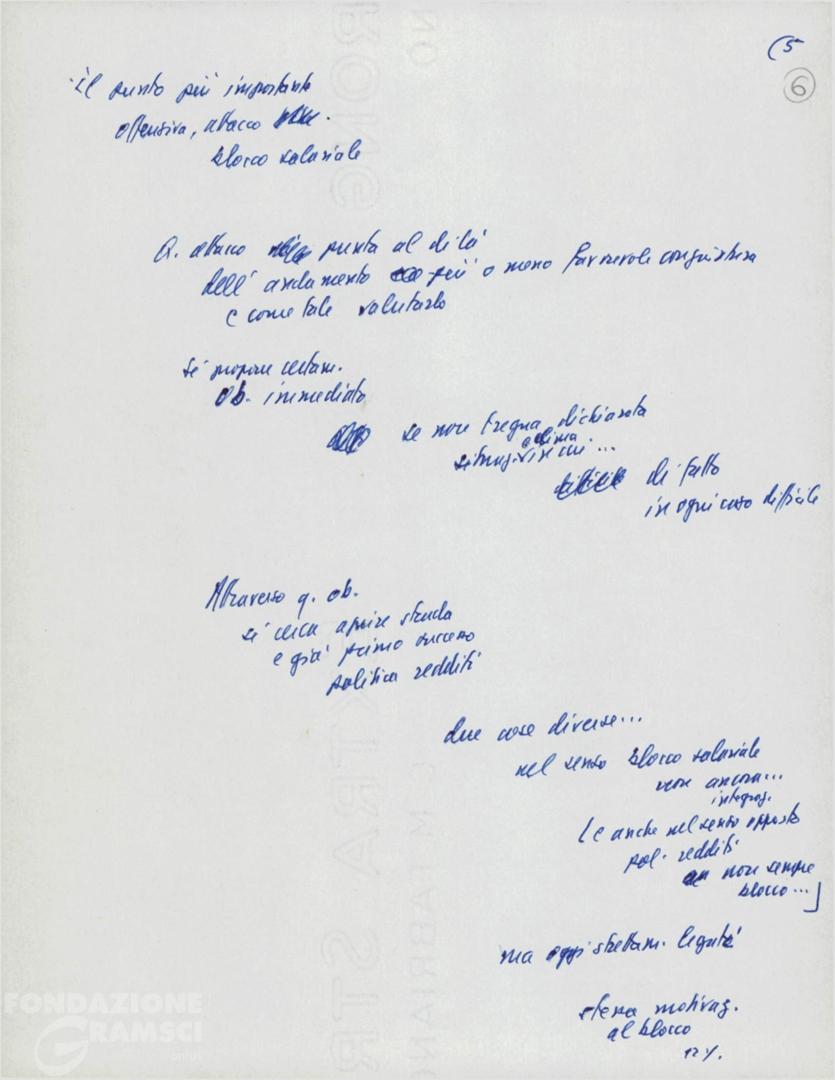 (5
6
il punto più importante
offensiva, attacco
blocco salariale
Q. attacco punta al di là
dell' andamento più o meno favorevole congiuntura
e come tale valutarlo
si propone certam.
ob. immediato
se non tregua dichiarata
clima
di fatto
in ogni caso difficile
Attraverso q. ob.
si cerca aprire strada
e già primo successo
politica redditi
due cose diverse...
nel senso blocco salariale
non ancora...
integraz.
(e anche nel senso opposto
pol. redditi
non sempre
blocco...]
ma oggi strettam. legate
stessa motivaz.
al blocco
12%.
FONDAZIONE
GRAMSCI
onlus